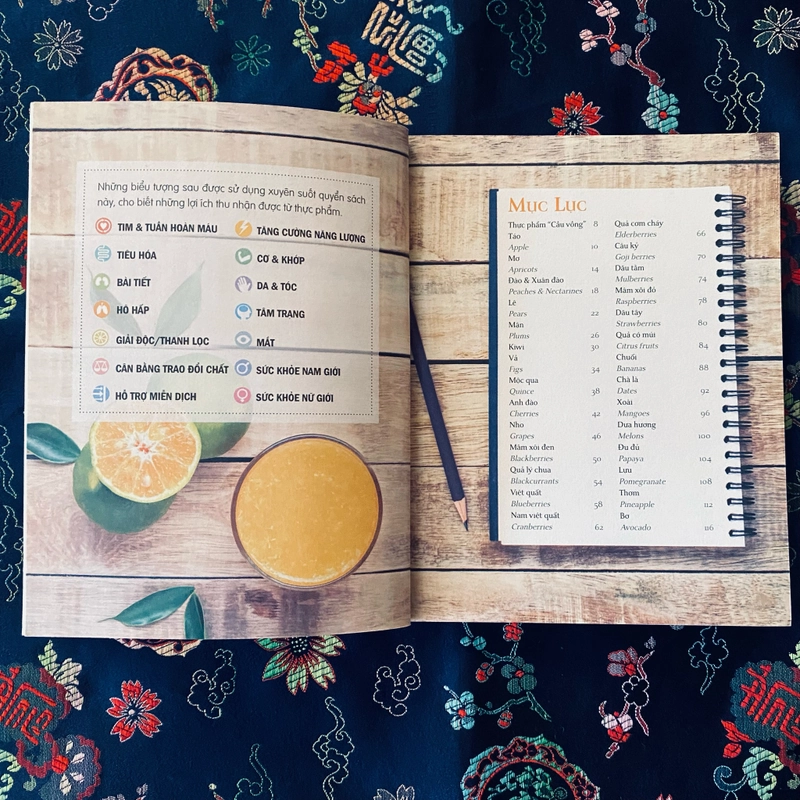 Những biểu tượng sau được sử dụng xuyên suốt quyển sách
này, cho biết những lợi ích thu nhận được từ thực phẩm.
TIM & TUẦN HOÀN MÁU
TIÊU HÓA
BÀI TIẾT
HÔ HẤP
GIẢI ĐỘC/THANH LỌC
CÂN BẰNG TRAO ĐỔI CHẤT
HỖ TRỢ MIỄN DỊCH
TĂNG CƯỜNG NĂNG LƯỢNG
CƠ & KHỚP
DA & TÓC
TÂM TRẠNG
MẮT
SỨC KHỎE NAM GIỚI
SỨC KHỎE NỮ GIỚI
Mục Lục
Thực phẩm "Cầu vồng" 8
Táo
Apple 10
Mơ
Apricots 14
Đào & Xuân đào
Peaches & Nectarines 18
Lê
Pears 22
Mận
Plums 26
Kiwi 30
Vả
Figs 34
Mộc qua
Quince 38
Anh đào
Cherries 42
Nho
Grapes 46
Mâm xôi đen
Blackberries 50
Quả lý chua
Blackcurrants 54
Việt quất
Blueberries 58
Nam việt quất
Cranberries 62
Quả cơm cháy
Elderberries 66
Câu kỷ
Goji berries 70
Dâu tằm
Mulberries 74
Mâm xôi đỏ
Raspberries 78
Dâu tây
Strawberries 80
Quả có múi
Citrus fruits 84
Chuối
Bananas 88
Chà là
Dates 92
Xoài
Mangoes 96
Dưa hương
Melons 100
Đu đủ
Papaya 104
Lựu
Pomegranate 108
Thơm
Pineapple 112
Bơ
Avocado 116